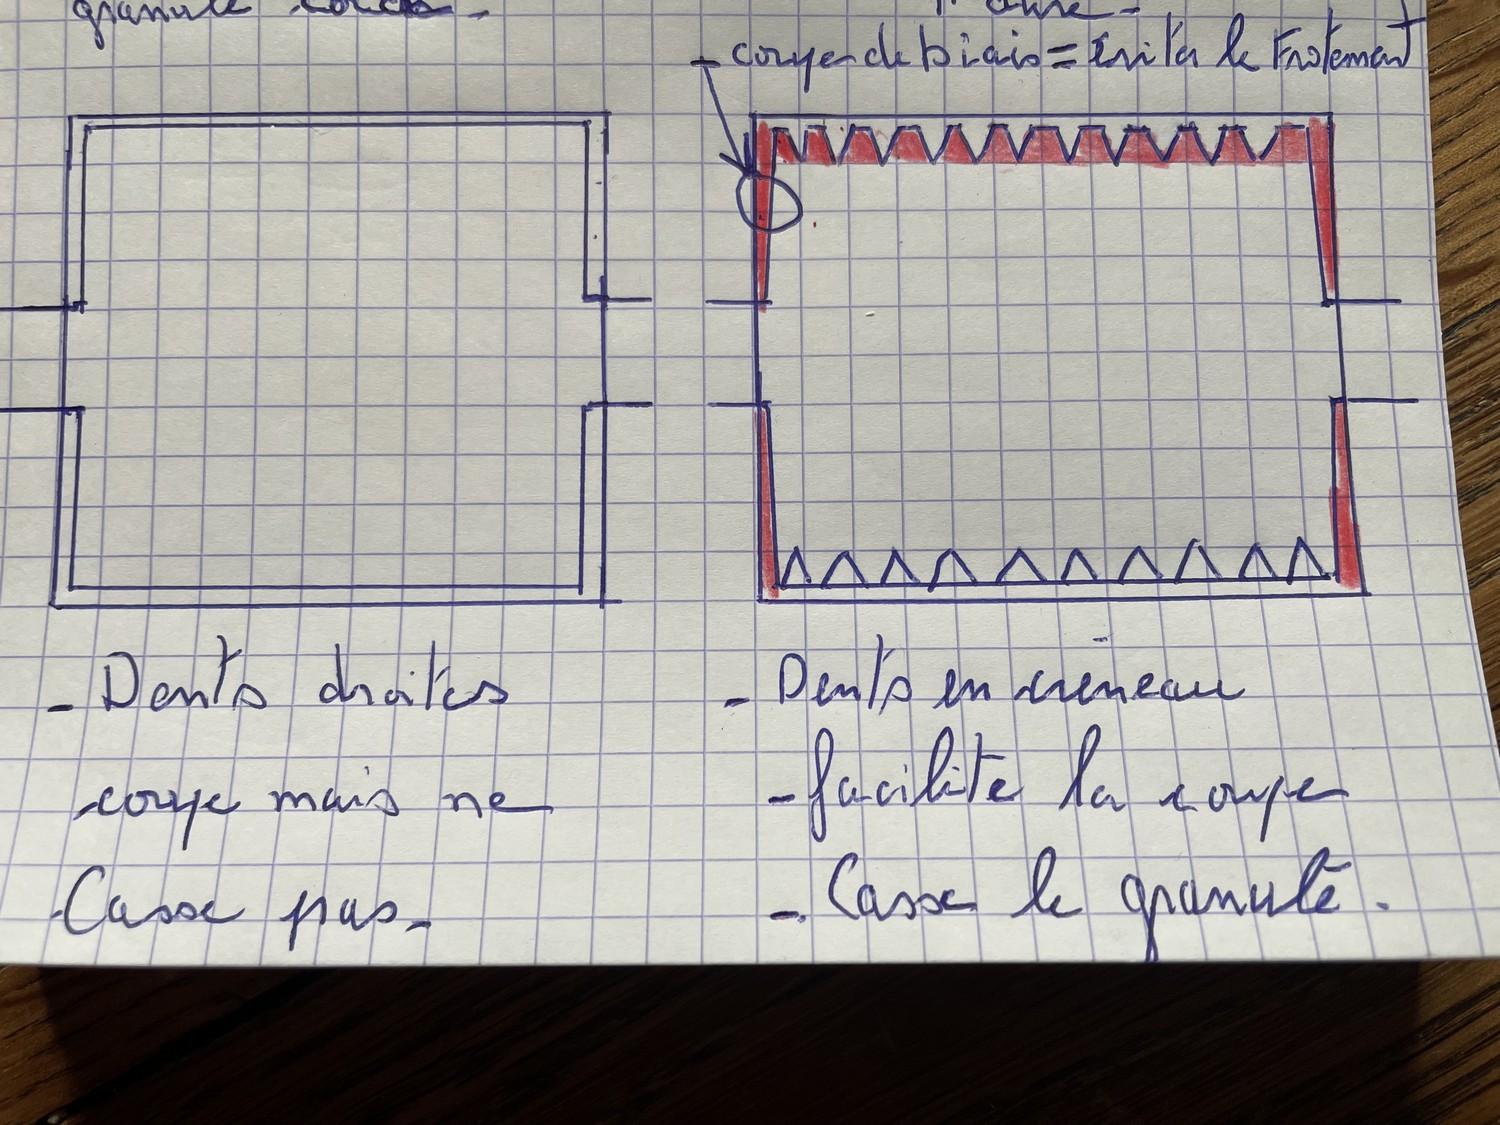 granulé
- couper de biais = évite le Frotement
- Dents droites
coupe mais ne
Casse pas -
- Dents en créneau
- facilite la coupe
- Casse le granulé.